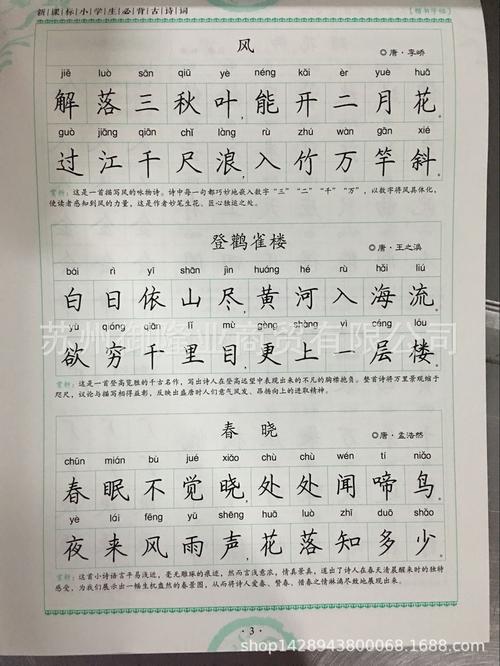 新课标小学生必背古诗词
【楷书字帖】
风
◎唐·李峤
jiě luò sān qiū yè néng kāi èr yuè huā
解落三秋叶，能开二月花。
guò jiāng qiān chǐ làng rù zhú wàn gān xié
过江千尺浪，入竹万竿斜。
赏析：这是一首描写风的咏物诗。诗中每一句都巧妙地嵌入数字“三”“二”“千”“万”，以数字将风具体化，
使读者感知到风的力量，这是作者妙笔生花、匠心独运之处。
登鹳雀楼
◎唐·王之涣
bái rì yī shān jìn huáng hé rù hǎi liú
白日依山尽，黄河入海流。
yù qióng qiān lǐ mù gèng shàng yì céng lóu
欲穷千里目，更上一层楼。
赏析：这是一首登高览胜的千古名作，写出诗人在登高远望中表现出来的不凡的胸襟抱负。整首诗将万里景观缩于
咫尺，议论与描写相得益彰，反映出盛唐时人们意气风发、昂扬向上的进取精神。
春晓
◎唐·孟浩然
chūn mián bù jué xiǎo chù chù wén tí niǎo
春眠不觉晓，处处闻啼鸟。
yè lái fēng yǔ shēng huā luò zhī duō shǎo
夜来风雨声，花落知多少。
赏析：这首小诗语言平易浅近，毫无雕琢的痕迹，然而言浅意浓，情真景真，道出了诗人在春天清晨醒来时的独特
感受，为我们展示出一幅生机盎然的春景图，从而将诗人爱春、赞春、惜春之情淋漓尽致地展现出来。
·3·
shop1428943800068.1688.com